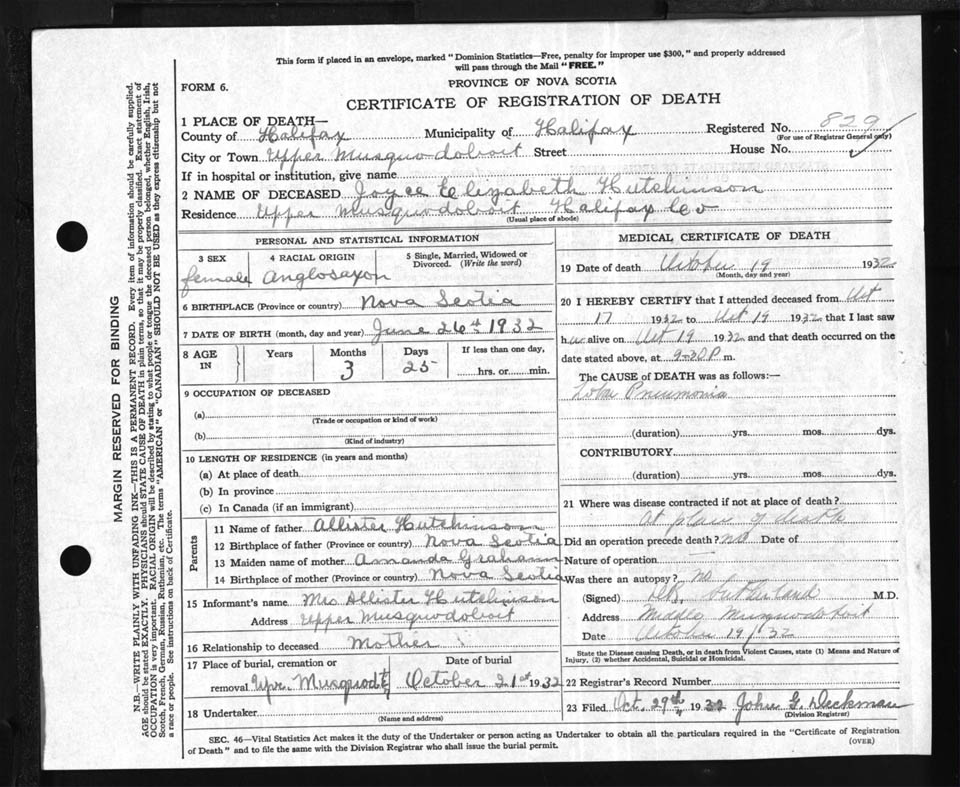 This form if placed in an envelope, marked "Dominion Statistics—Free, penalty for improper use $300," and properly addressed
will pass through the Mail "FREE."
FORM 6.
PROVINCE OF NOVA SCOTIA
CERTIFICATE OF REGISTRATION OF DEATH
1 PLACE OF DEATH—
County of Halifax Municipality of Halifax Registered No. 829
(For use of Registrar General only)
City or Town Upper Musquodoboit Street House No.
If in hospital or institution, give name
2 NAME OF DECEASED Joyce Elizabeth Hutchinson
Residence Upper Musquodoboit Halifax Co
(Usual place of abode)
PERSONAL AND STATISTICAL INFORMATION
3 SEX 4 RACIAL ORIGIN 5 Single, Married, Widowed or
Divorced. (Write the word)
female Anglosaxon
6 BIRTHPLACE (Province or country) Nova Scotia
7 DATE OF BIRTH (month, day and year) June 24th 1932
8 AGE IN Years Months Days If less than one day,
3 25 hrs. or min.
9 OCCUPATION OF DECEASED
(a)
(Trade or occupation or kind of work)
(b)
(Kind of industry)
10 LENGTH OF RESIDENCE (in years and months)
(a) At place of death
(b) In province
(c) In Canada (if an immigrant)
Parents
11 Name of father Allister Hutchinson
12 Birthplace of father (Province or country) Nova Scotia
13 Maiden name of mother Amanda Graham
14 Birthplace of mother (Province or country) Nova Scotia
15 Informant's name Mrs Allister Hutchinson
Address Upper Musquodoboit
16 Relationship to deceased Mother
17 Place of burial, cremation or Date of burial
removal Upr. Musquodt October 21st 1932
18 Undertaker
(Name and address)
MEDICAL CERTIFICATE OF DEATH
19 Date of death October 19 1932
(Month, day and year)
20 I HEREBY CERTIFY that I attended deceased from Oct
17 1932 to Oct 19 1932 that I last saw
her alive on Oct 19 1932 and that death occurred on the
date stated above, at 9-30 P m.
The CAUSE OF DEATH was as follows:—
Lobar Pneumonia
(duration) yrs. mos. dys.
CONTRIBUTORY
(duration) yrs. mos. dys.
21 Where was disease contracted if not at place of death?
At place of death
Did an operation precede death? no Date of
Nature of operation
Was there an autopsy? no
(Signed) M.D.
Address Middle Musquodoboit
Date October 19/32
State the Disease causing Death, or in death from Violent Causes, state (1) Means and Nature of
Injury, (2) whether Accidental, Suicidal or Homicidal.
22 Registrar's Record Number
23 Filed Oct. 29th 1932 John G. Deckman
(Division Registrar)
SEC. 46—Vital Statistics Act makes it the duty of the Undertaker or person acting as Undertaker to obtain all the particulars required in the "Certificate of Registration
of Death" and to file the same with the Division Registrar who shall issue the burial permit.
(OVER)
MARGIN RESERVED FOR BINDING
N.B.—WRITE PLAINLY WITH UNFADING INK—THIS IS A PERMANENT RECORD. Every item of information should be carefully supplied.
AGE should be stated EXACTLY. PHYSICIANS should STATE CAUSE OF DEATH in plain terms, so that it may be properly classified. Exact statement of
OCCUPATION is very important. RACIAL ORIGIN will be described by stating to what people or tongue the deceased person belonged, whether English, Irish,
Scotch, French, German, Russian, Ruthenian, etc. The terms "AMERICAN" or "CANADIAN" SHOULD NOT BE USED as they express citizenship but not
a race or people. See instructions on back of Certificate.